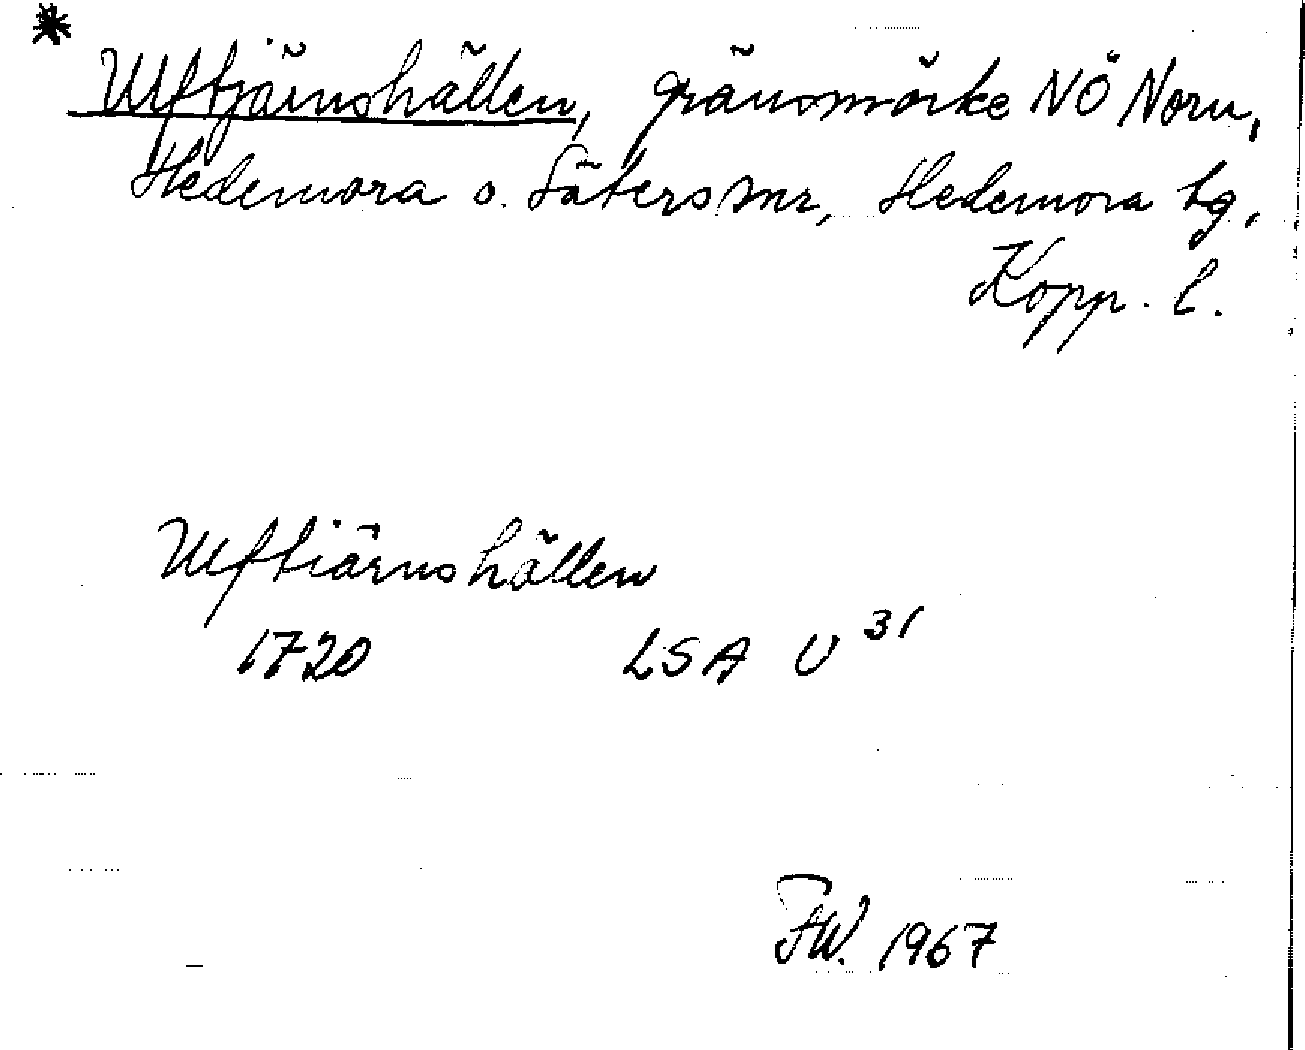 *
Ulftjärnshällen, gränsmärke NÖ Norn,
Hedemora o. Säters snr, Hedemora tg,
Kopp. l.
Ulftiärnshällen
1720 LSA U 31
FW. 1967